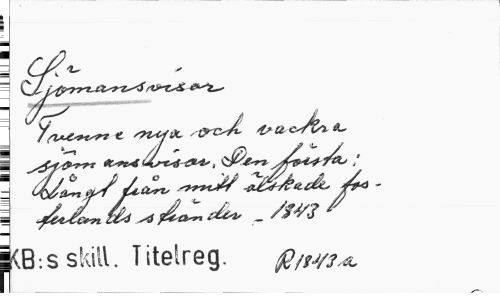 Sjömansvisor
Tvenne nya och vackra
sjömansvisor. Den första:
Långt från mitt älskade fos-
terlands stränder - 1843
KB:s skill. Titelreg. R1843a